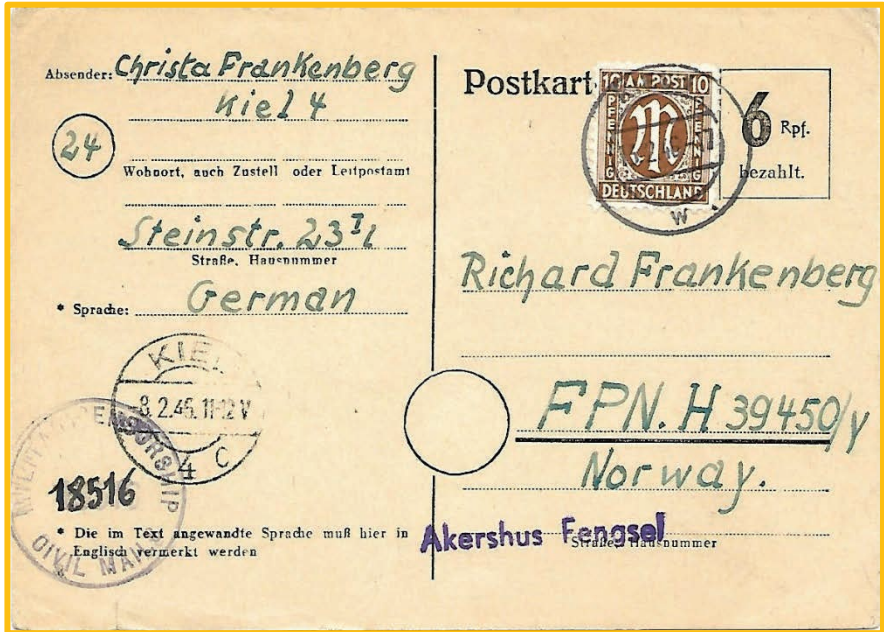 Absender: Christa Frankenberg
Kiel 4
24
Wohnort, auch Zustell oder Leitpostamt
Steinstr. 23 I l
Straße, Hausnummer
* Sprache: German
KIEL
-8.2.46.11-12 V
4 C
CENSORSHIP
CIVIL MAILS
18516
* Die im Text angewandte Sprache muß hier in
Englisch vermerkt werden
Postkart
10 AM POST 10
PFENNIG M PFENNIG
DEUTSCHLAND
W
6 Rpf.
bezahlt.
Richard Frankenberg
FPN. H 39450/Y
Norway.
Akershus Fengsel
Straße, Hausnummer